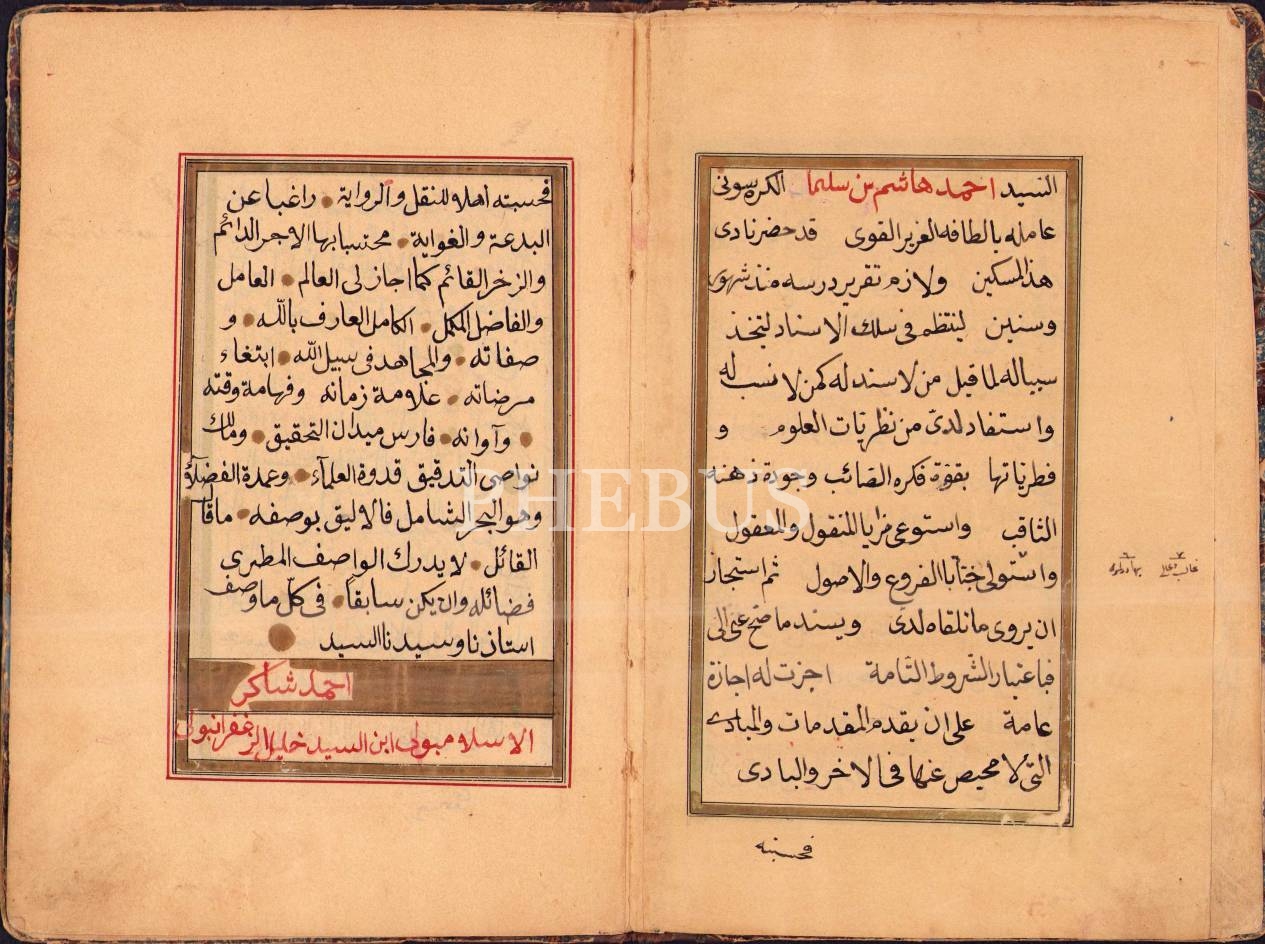 السيد احمد هاشم بن سليما الكره سونى
عامله بالطافه العزيز القوى قد حضر نادى
هذا المسكين ولازم تقرير درسه منذ شهور
وسنين لينتظم فى سلك الاسناد ليتخذ
سبيا له لما قيل من لا سند له كمن لا نسب له
واستفاد لدىّ من نظريّات العلوم و
فطرياتها بقوّة فكره الصّائب وجودة ذهنه
الثاقب واستوعى مزايا المنقول والمعقول
واستولى الفروع والاصول ثم استجاز
ان يروى ما تلقاه لدى ويسند ما صّح عنى الى
فباعتبار الشّروط التّامة اجزت له اجازة
عامة على ان يقدم المقدمات والمبادى
التى لا محيص عنها فى الاخر والبادى
فحسبته
فحسبته أهلا للنقل والرواية راغبا عن
البدعة والغواية محتسبا بها الاجر الدائم
والزخر القائم كما اجاز لى العالم العامل
والفاضل المكمل الكامل العارف بالله و
صفاته والمجاهد فى سبيل الله ابتغاء
مرضاته علامة زمانه وفهامة وقته
وآوانه فارس ميدان التحقيق ومالك
نواصى التدقيق قدوة العلمآء وعمدة الفضلآء
وهو البحر الشامل فالاليق بوصفه ما قا
القائل لا يدرك الواصف المطرى
فضائله وان يكن سابقاً فى كلّ ما وصف
استاذنا وسيدنا السيد
احمد شاكر
الاسلامبولى ابن السيد خليل الزغفرانبولى
PHEBUS